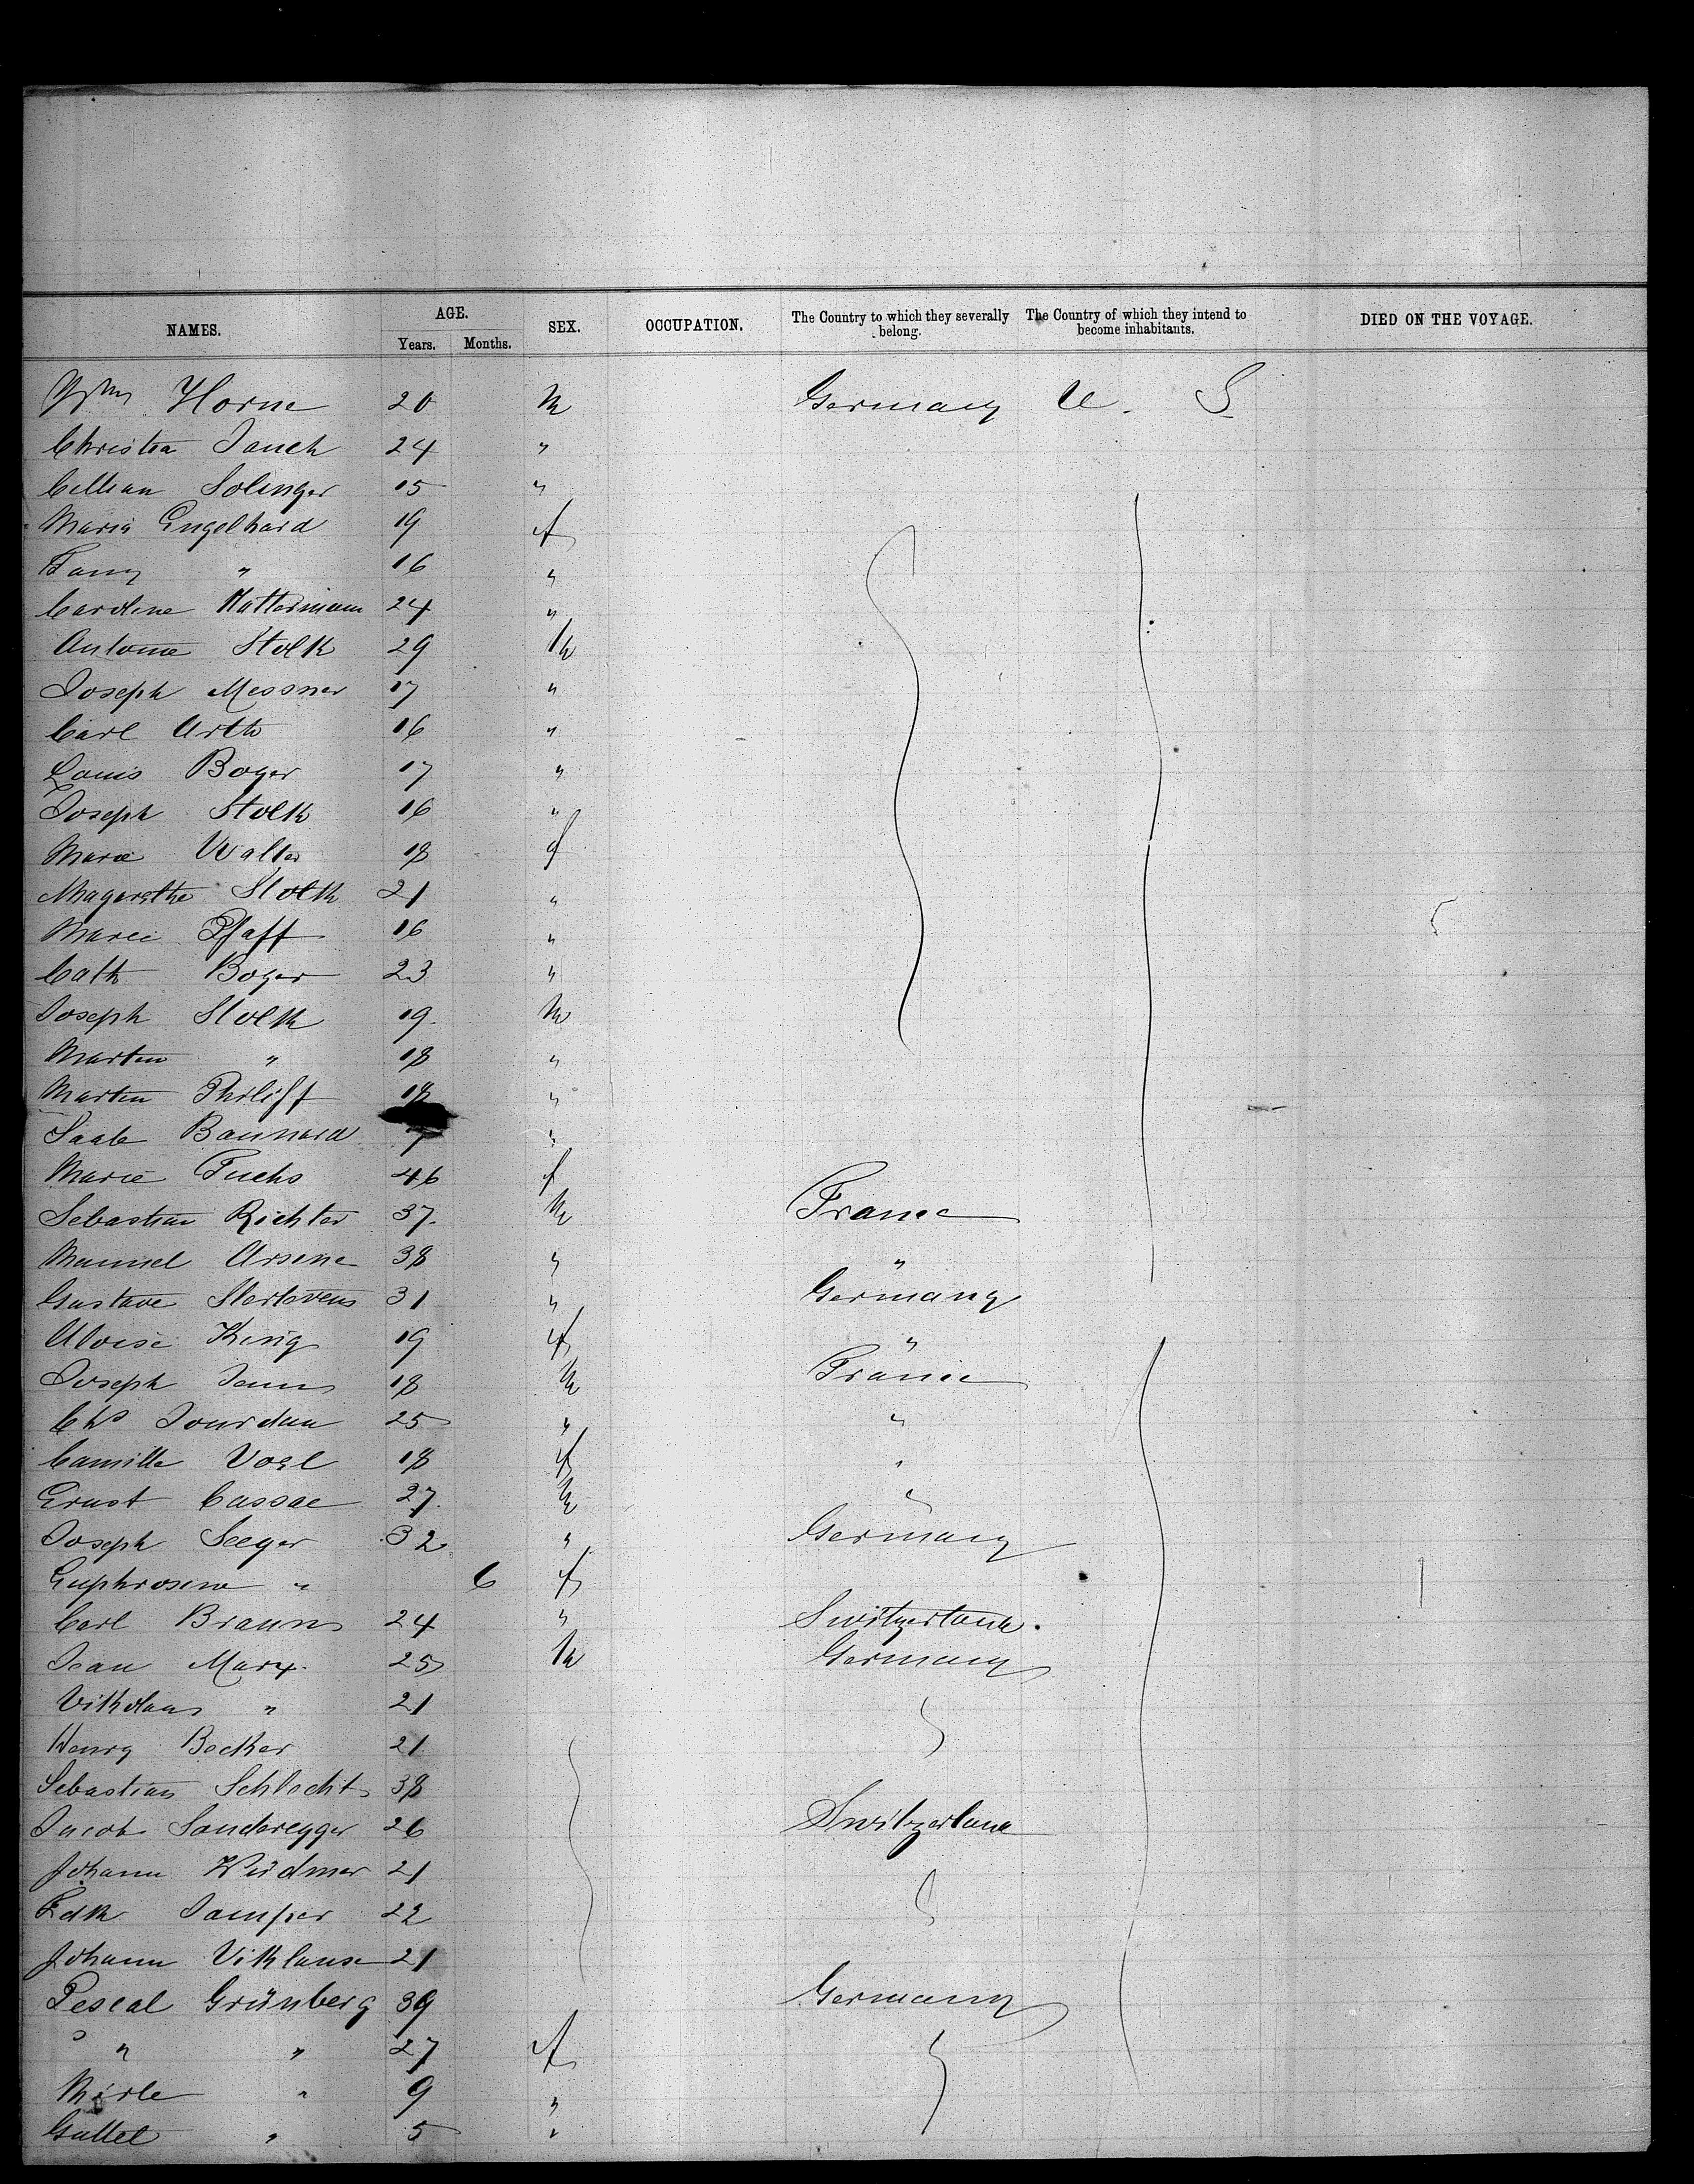 NAMES. AGE. SEX. OCCUPATION. The Country to which they severally belong. The Country of which they intend to become inhabitants. DIED ON THE VOYAGE.
Years. Months.
Wm Horne 20 M Germany U. S
Christia Jauch 24 "
Solinger 15 "
Maria Engelhard 19 f
Fany " 16 "
Caroline Kattermann 24 "
Antoine Stolk 29 M
Joseph Messner 17 "
Carl Arth 16 "
Louis Boger 17 "
Joseph Stolk 16 "
Marie Walter 18 f
Magarethe Stolk 21 "
Marie Pfaff 16 "
Cath Boger 23 "
Joseph Stolk 19 M
Martin " 18 "
Martin Philipp 18 "
Bannard 7 "
Marie Fuchs 46 f
Sebastian Richter 37 M France
Manuel Arsene 38 " "
Gustave 31 " Germany
Aloise King 19 f "
Joseph 18 M France
Chs Jourdan 25 " "
Camille Vogl 18 f "
Ernst Cassae 27 M "
Joseph Seeger 32 " Germany
Euphrosine " 6 f
Carl Braun 24 " Switzerland.
Jean Marx 25 M Germany
" 21
Henry Becker 21
Sebastian Schlecht 38
Jacob Sonderegger 26 Switzerland
Johann Widmer 21
22
Johann 21
Pescal Grünberg 39 Germany
" " 27 f
Mirle " 9 "
Guttel " 5 "